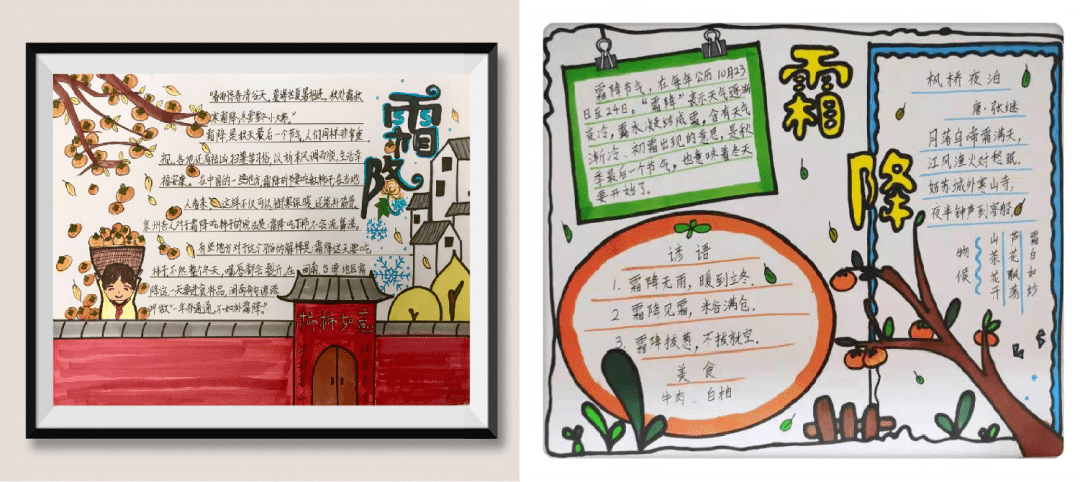 雨将春清谷天,夏满芒夏暑相连,秋处露秋
寒霜降,冬雪雪冬小大寒。"
霜降,是秋天最后一个节气,人们同样非常重
视,各地还有扫墓等习俗,以祈求风调雨顺,生活幸
福安康。在中国的一些地方,霜降时节要吃红柿子,在当地
人看来,这样不仅可以御寒保暖,还能补筋骨,
泉州老人对于霜降吃柿子的说法是:霜降吃丁柿,不会流鼻涕。
有些地方对于这个习俗的解释是:霜降这天要吃
柿子,不然整个冬天,嘴唇都会裂开,在闽南台湾地区霜
降这一天要进食补品,闽南有句谚语
叫做"一年补通通,不如补霜降。"
霜降
柿柿如意
霜降节气,在每年公历10月23
日至24日,"霜降"表示天气逐渐
变冷,露水凝结成霜,含有天气
渐冷、初霜出现的意思,是秋
季最后一个节气,也意味着冬天
要开始了。
霜降
谚语
1. 霜降无雨,暖到立冬.
2 霜降见霜,米谷满仓.
3. 霜降拔葱,不拔就空.
美食
牛肉、白柚
枫桥夜泊
唐·张继
月落乌啼霜满天,
江风渔火对愁眠.
姑苏城外寒山寺,
夜半钟声到客船
霜白如妙
芦花飘荡
山茶花开
物候